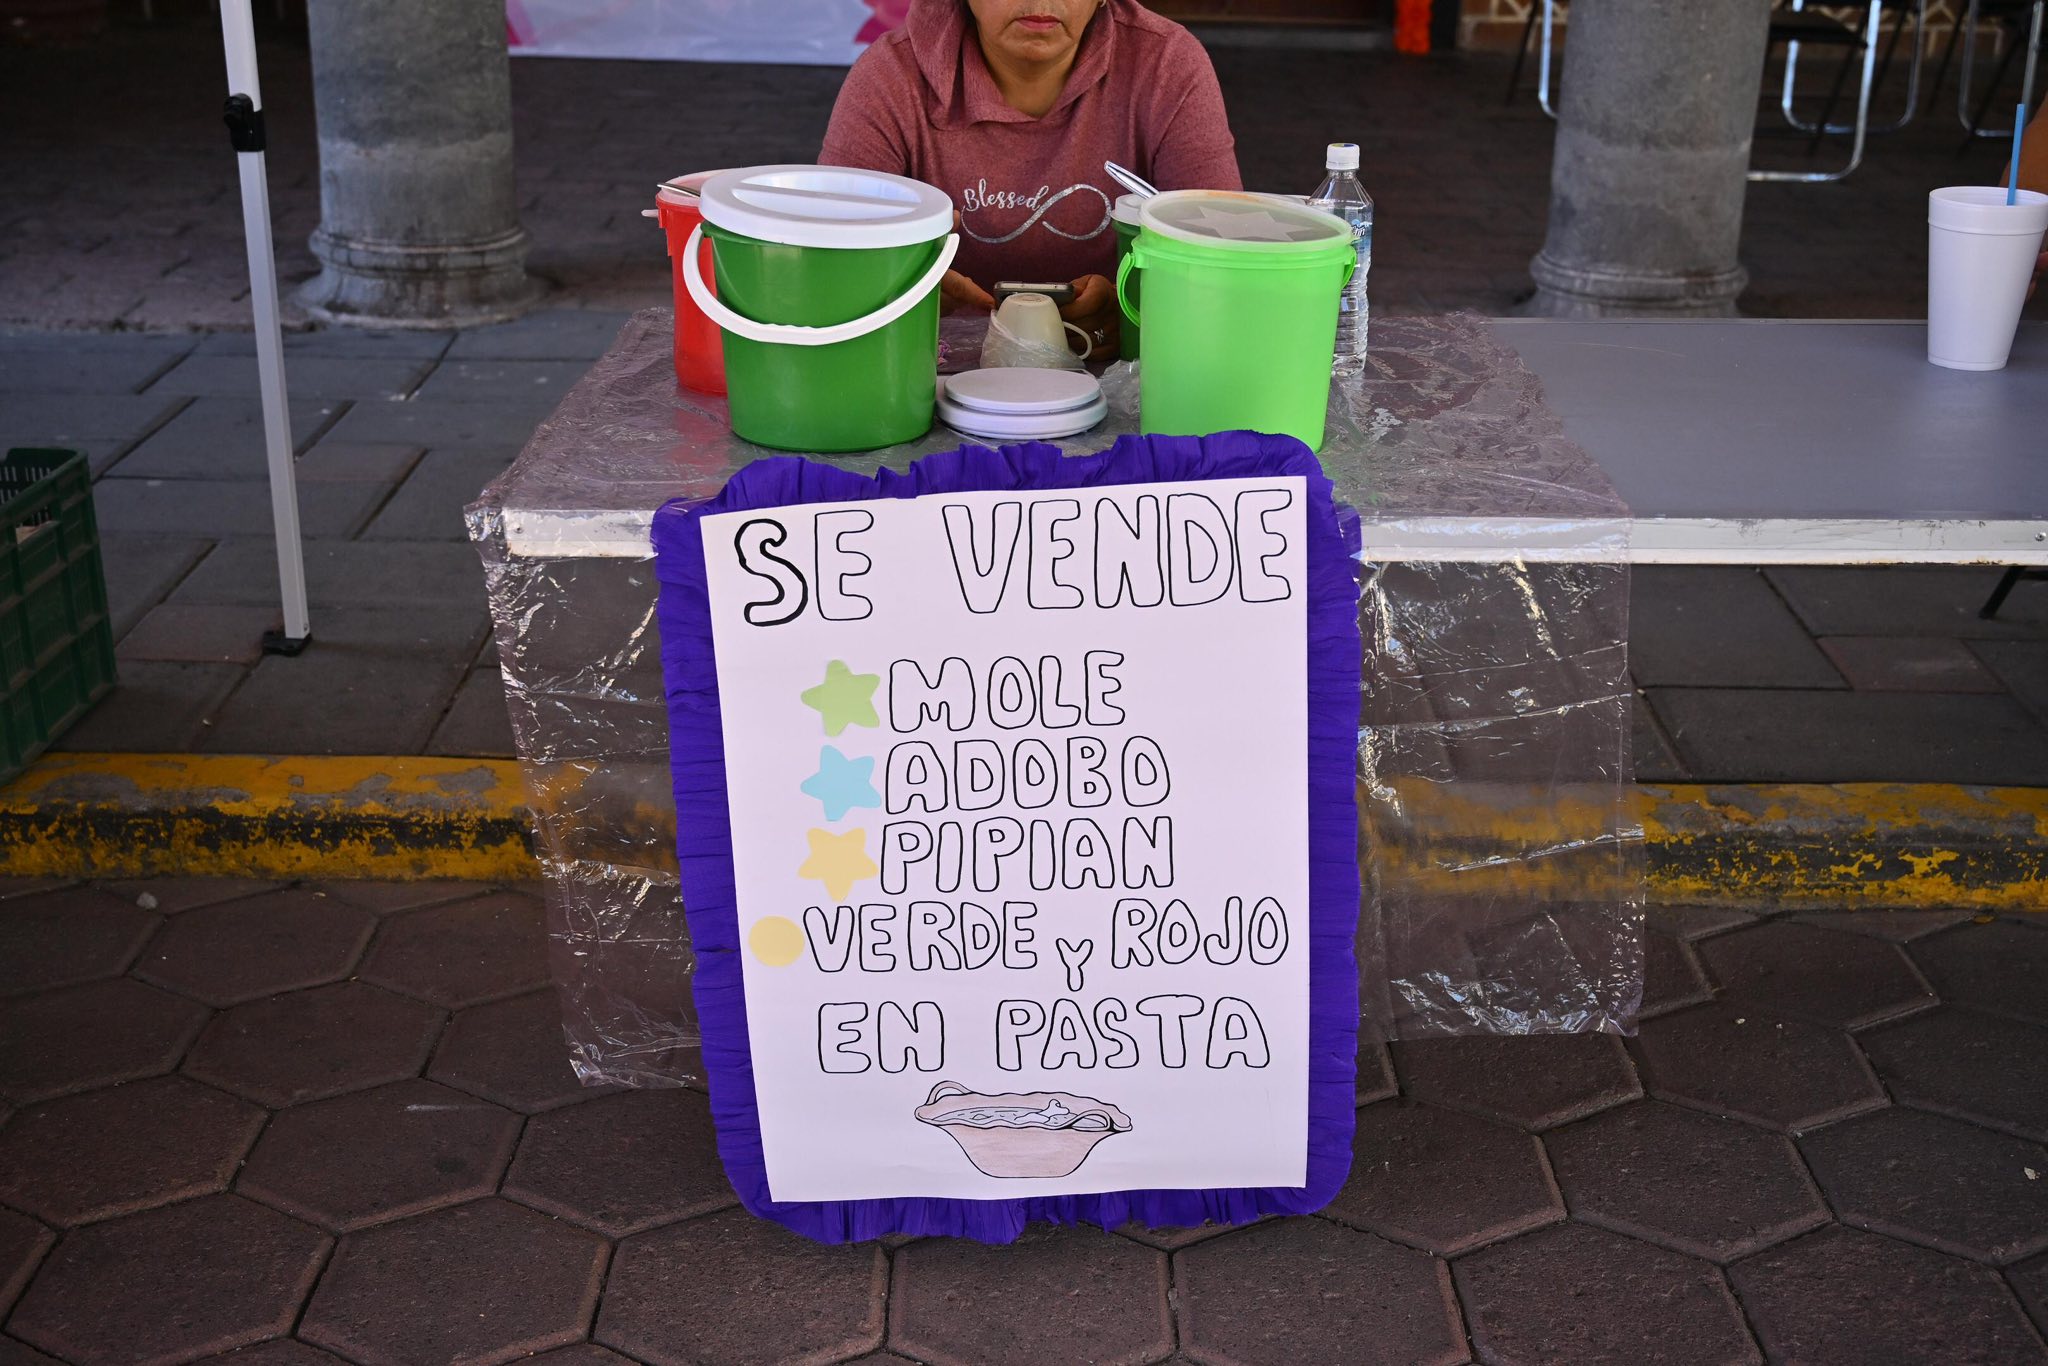 Blessed
SE VENDE
MOLE
ADOBO
PIPIAN
VERDE Y ROJO
EN PASTA